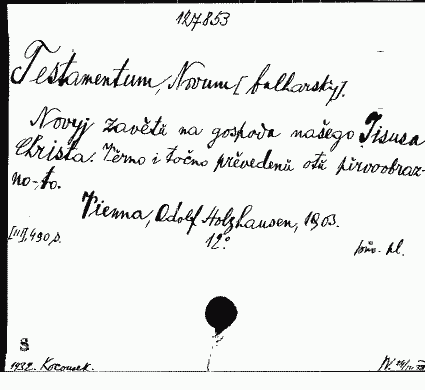 127853
Testamentum, Novum [bulharsky].
Novyj zavětŭ na gospoda našego Jisusa
Christa. Věrno i točno prěvedenŭ otŭ pŭrvoobraz-
no-to.
Vienna, Adolf Holzhausen, 1903.
[II], 490 p. 12°.
8
1932. Kocourek.